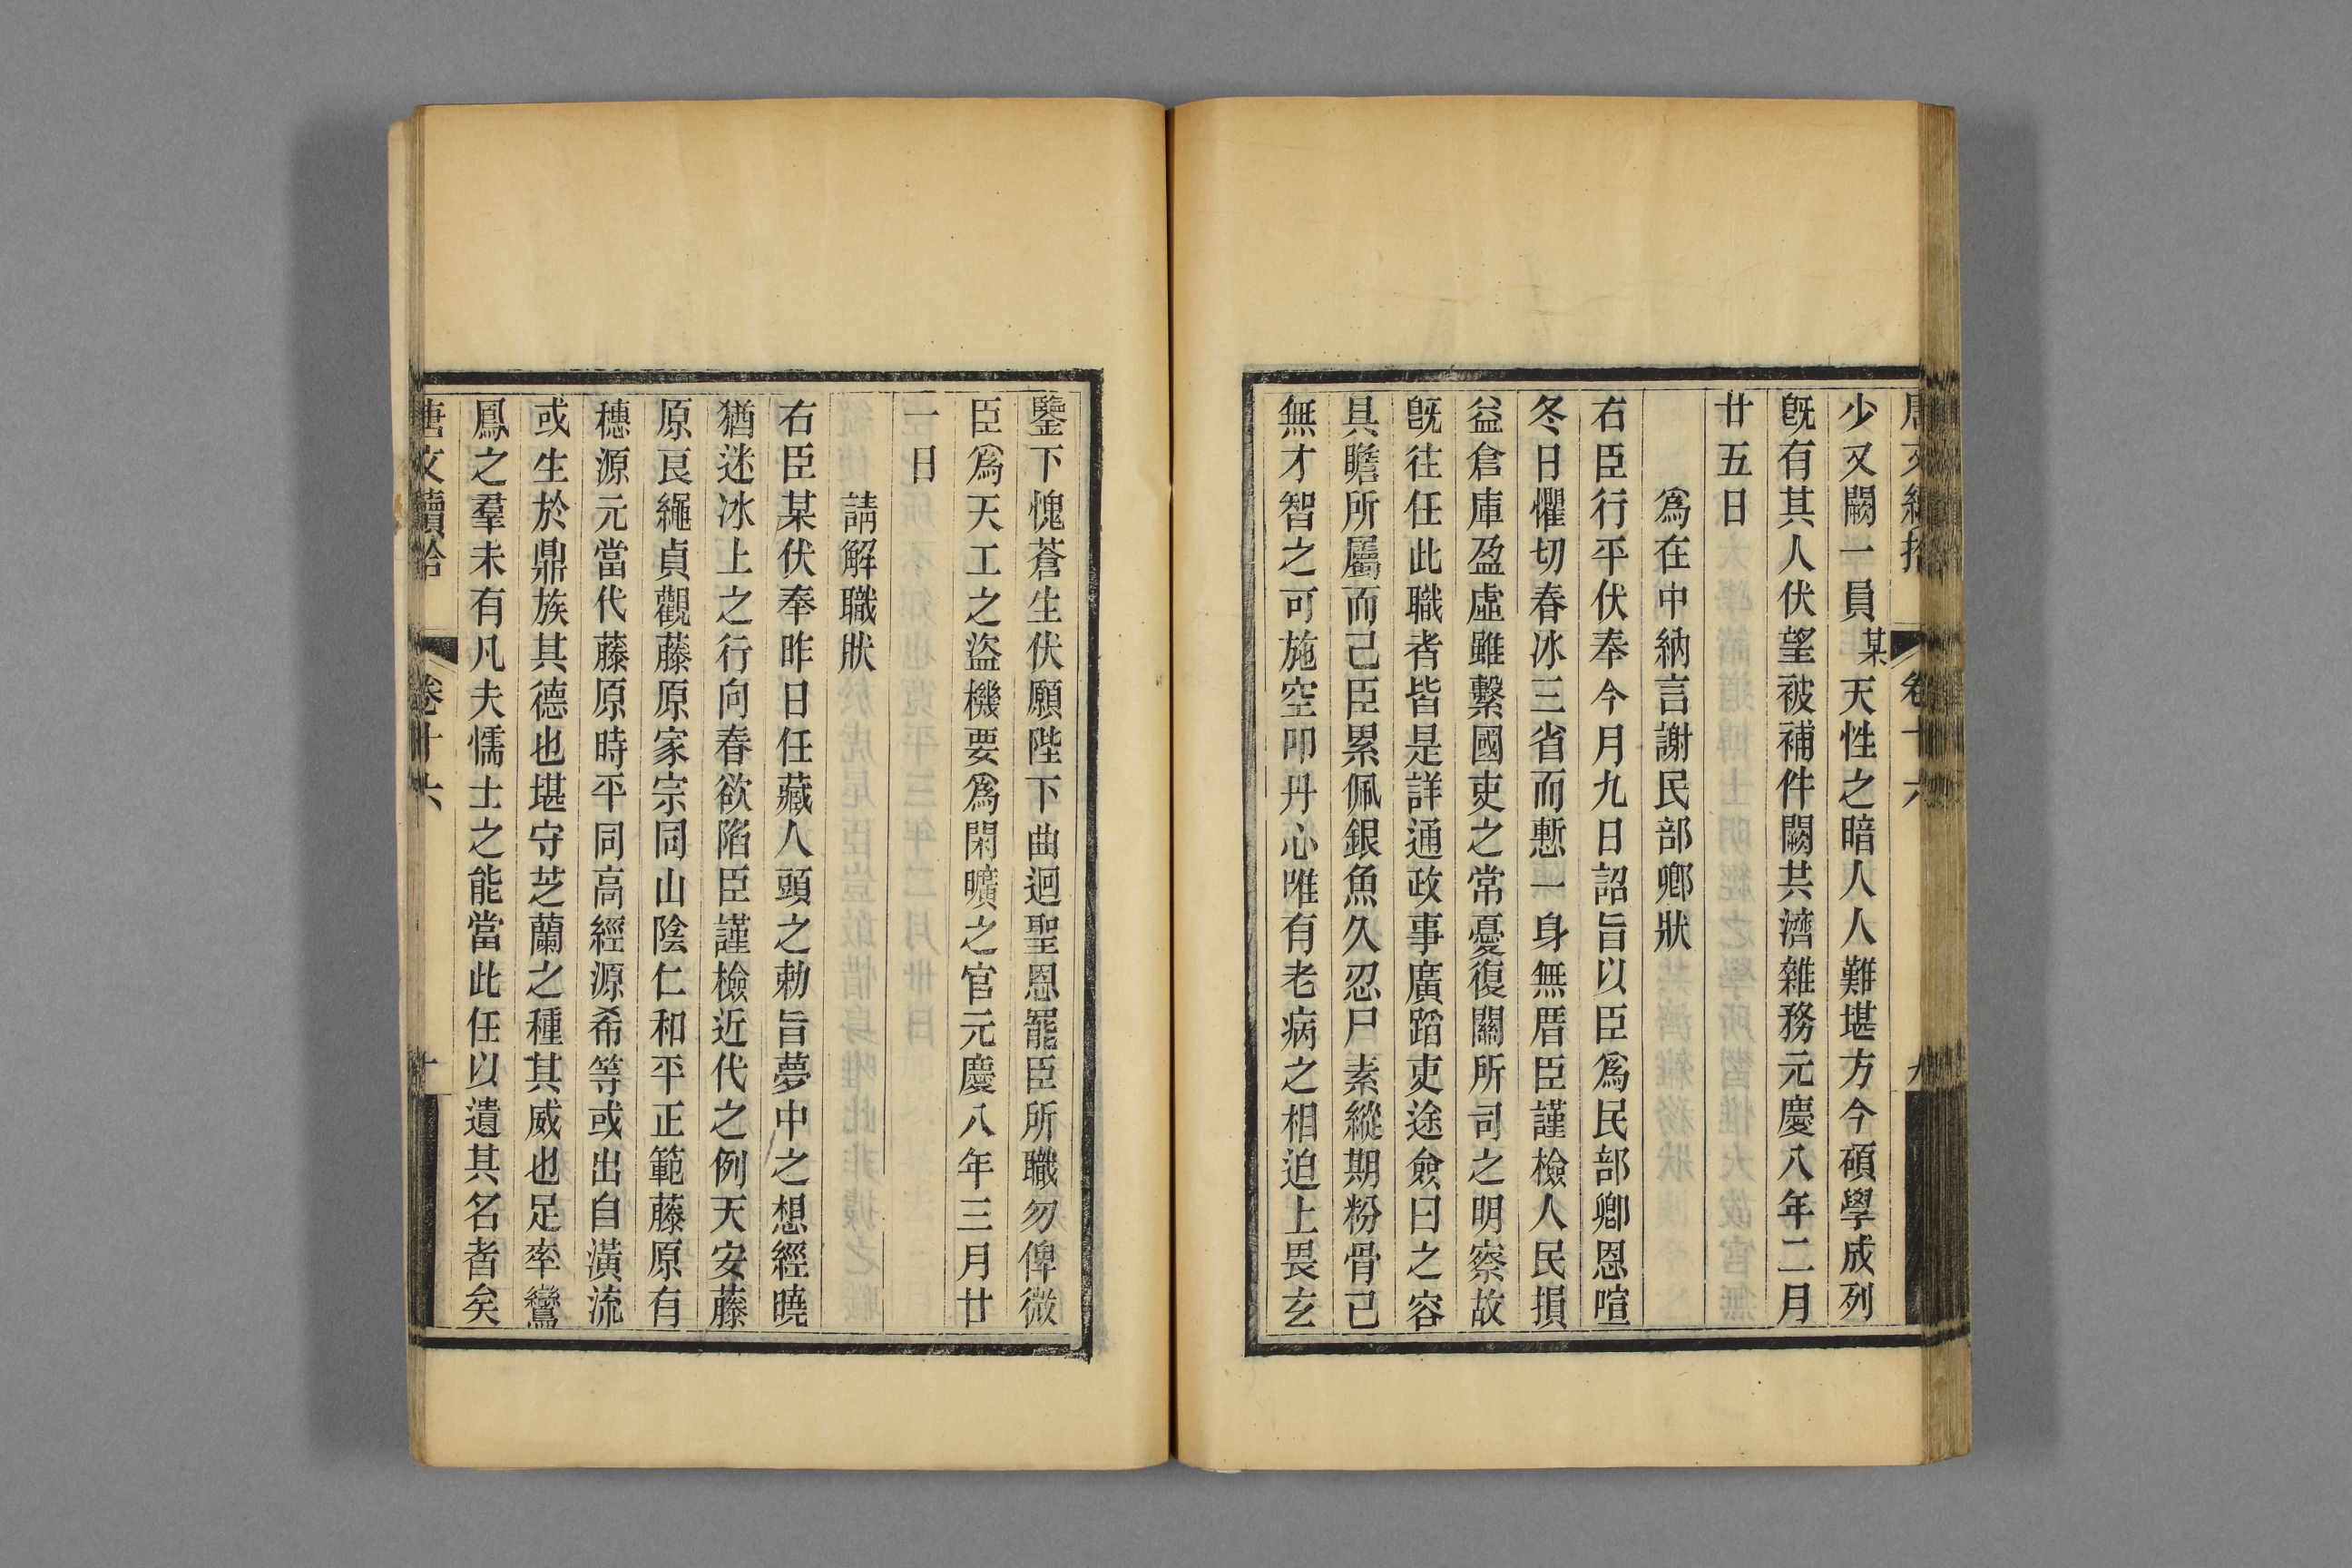 少又闕一員某天性之暗人人難堪方今碩學成列
旣有其人伏望被補件闕共濟雜務元慶八年二月
廿五日
爲在中納言謝民部卿狀
右臣行平伏奉今月九日詔旨以臣爲民部卿恩喧
冬日懼切春冰三省而慙一身無厝臣謹檢人民損
益倉庫盈虛雖繫國吏之常憂復關所司之明察故
旣往任此職者皆是詳通政事廣蹈吏途僉曰之容
具瞻所屬而己臣累佩銀魚久忍尸素縱期粉骨已
無才智之可施空叩丹心唯有老病之相迫上畏玄
鑒下愧蒼生伏願陛下曲迴聖恩罷臣所職勿俾微
臣爲天工之盜機要爲閑曠之官元慶八年三月廿
一日
請解職狀
右臣某伏奉昨日任藏人頭之勅旨夢中之想經曉
猶迷冰上之行向春欲陷臣謹檢近代之例天安藤
原良繩貞觀藤原家宗同山陰仁和平正範藤原有
穗源元當代藤原時平同高經源希等或出自潢流
或生於鼎族其德也堪守芝蘭之種其威也足率鸞
鳳之羣未有凡夫懦士之能當此任以遺其名者矣
唐文續拾 卷十六 十